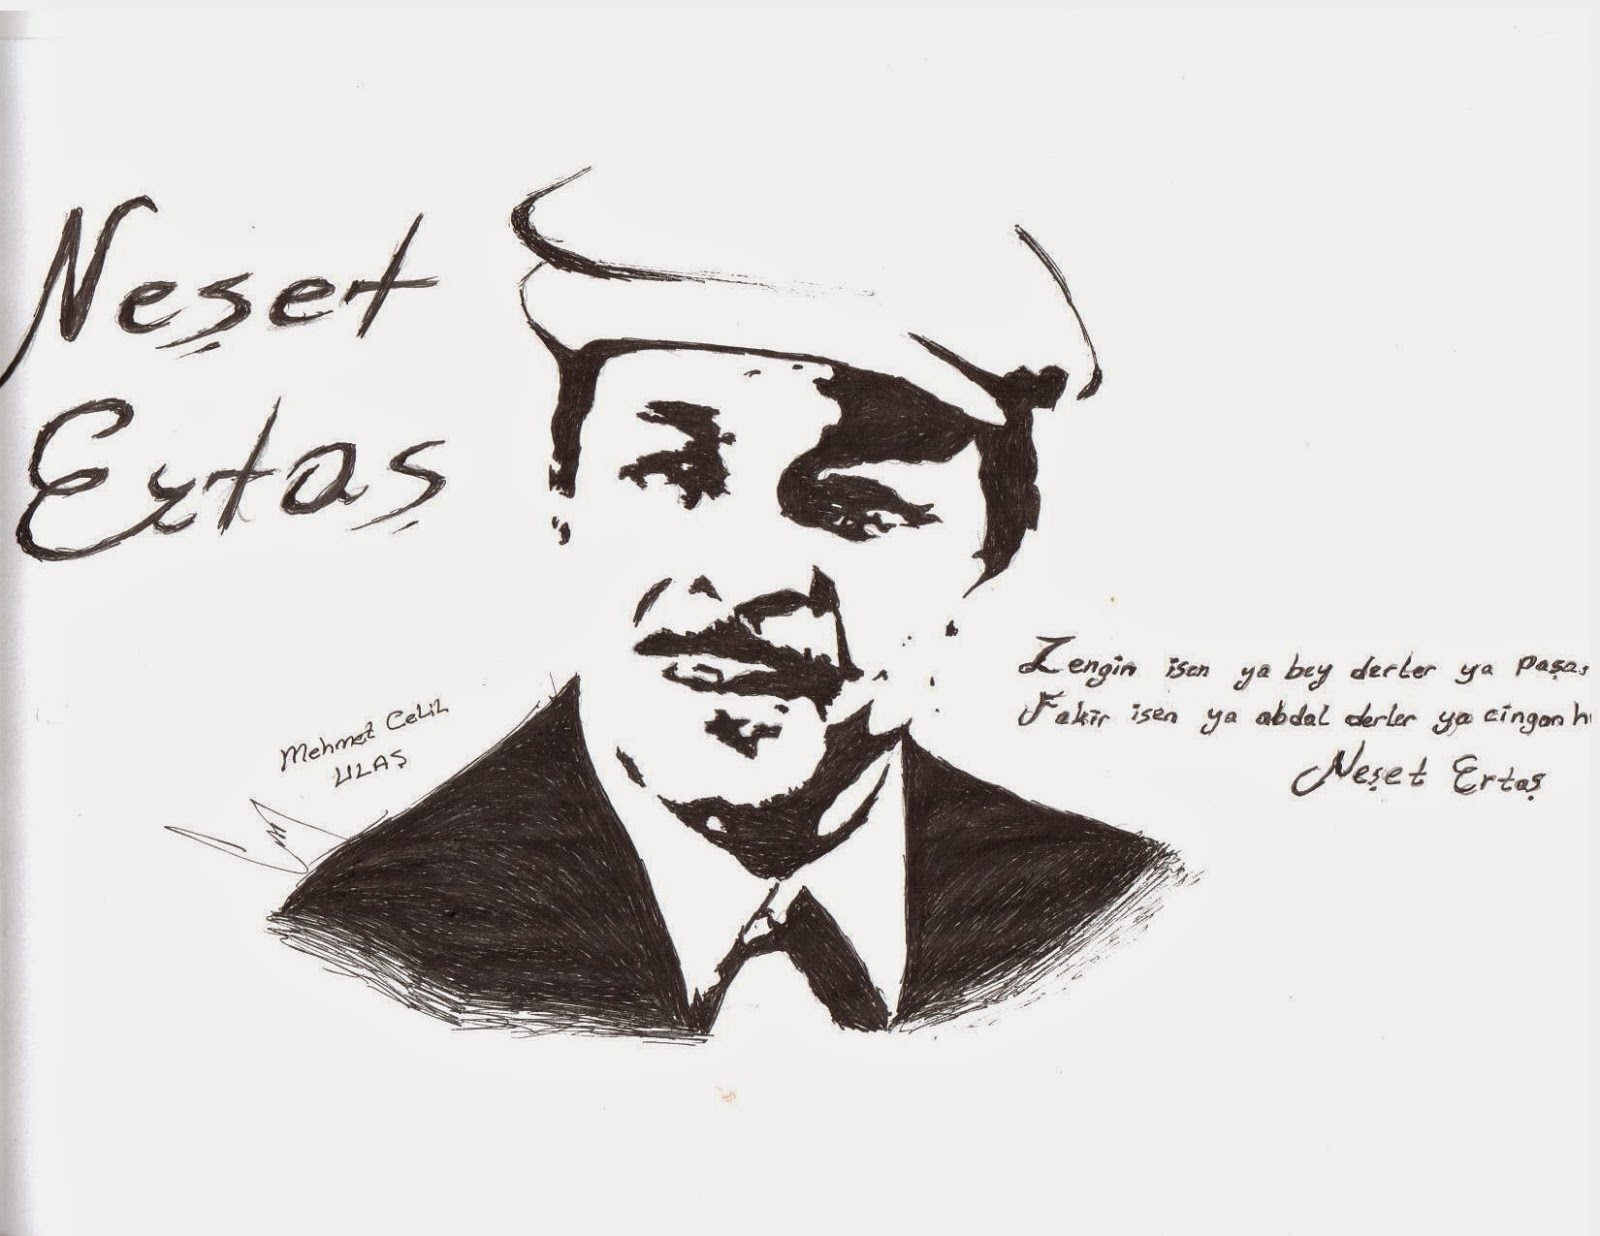 Neşet
Ertaş
Zengin isen ya bey derler ya paşa
Fakir isen ya abdal derler ya cingan h
Neşet Ertaş
Mehmet Celil
ULAŞ